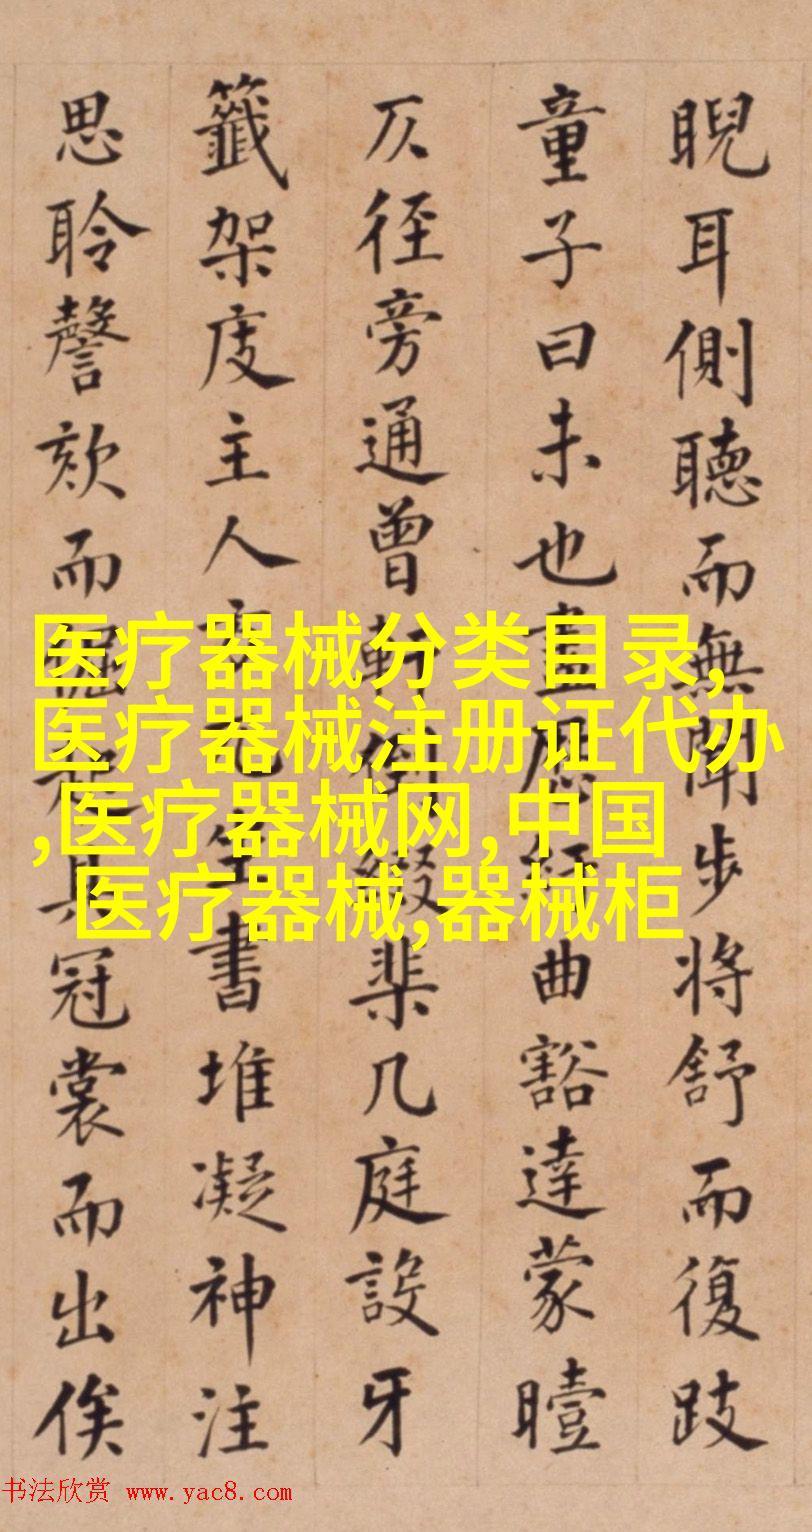 睨耳側聽而無聞步將舒而復跂
童子曰未也畫曲豁達蒙曀
仄徑旁通曾軒棐几庭設牙
籤架庋主人書堆凝神注
思聆謦欬而其冠裳而出俟
医疗器械分类目录,
医疗器械注册证代办
,医疗器械网,中国
医疗器械,器械柜
书法欣赏 www.yac8.com